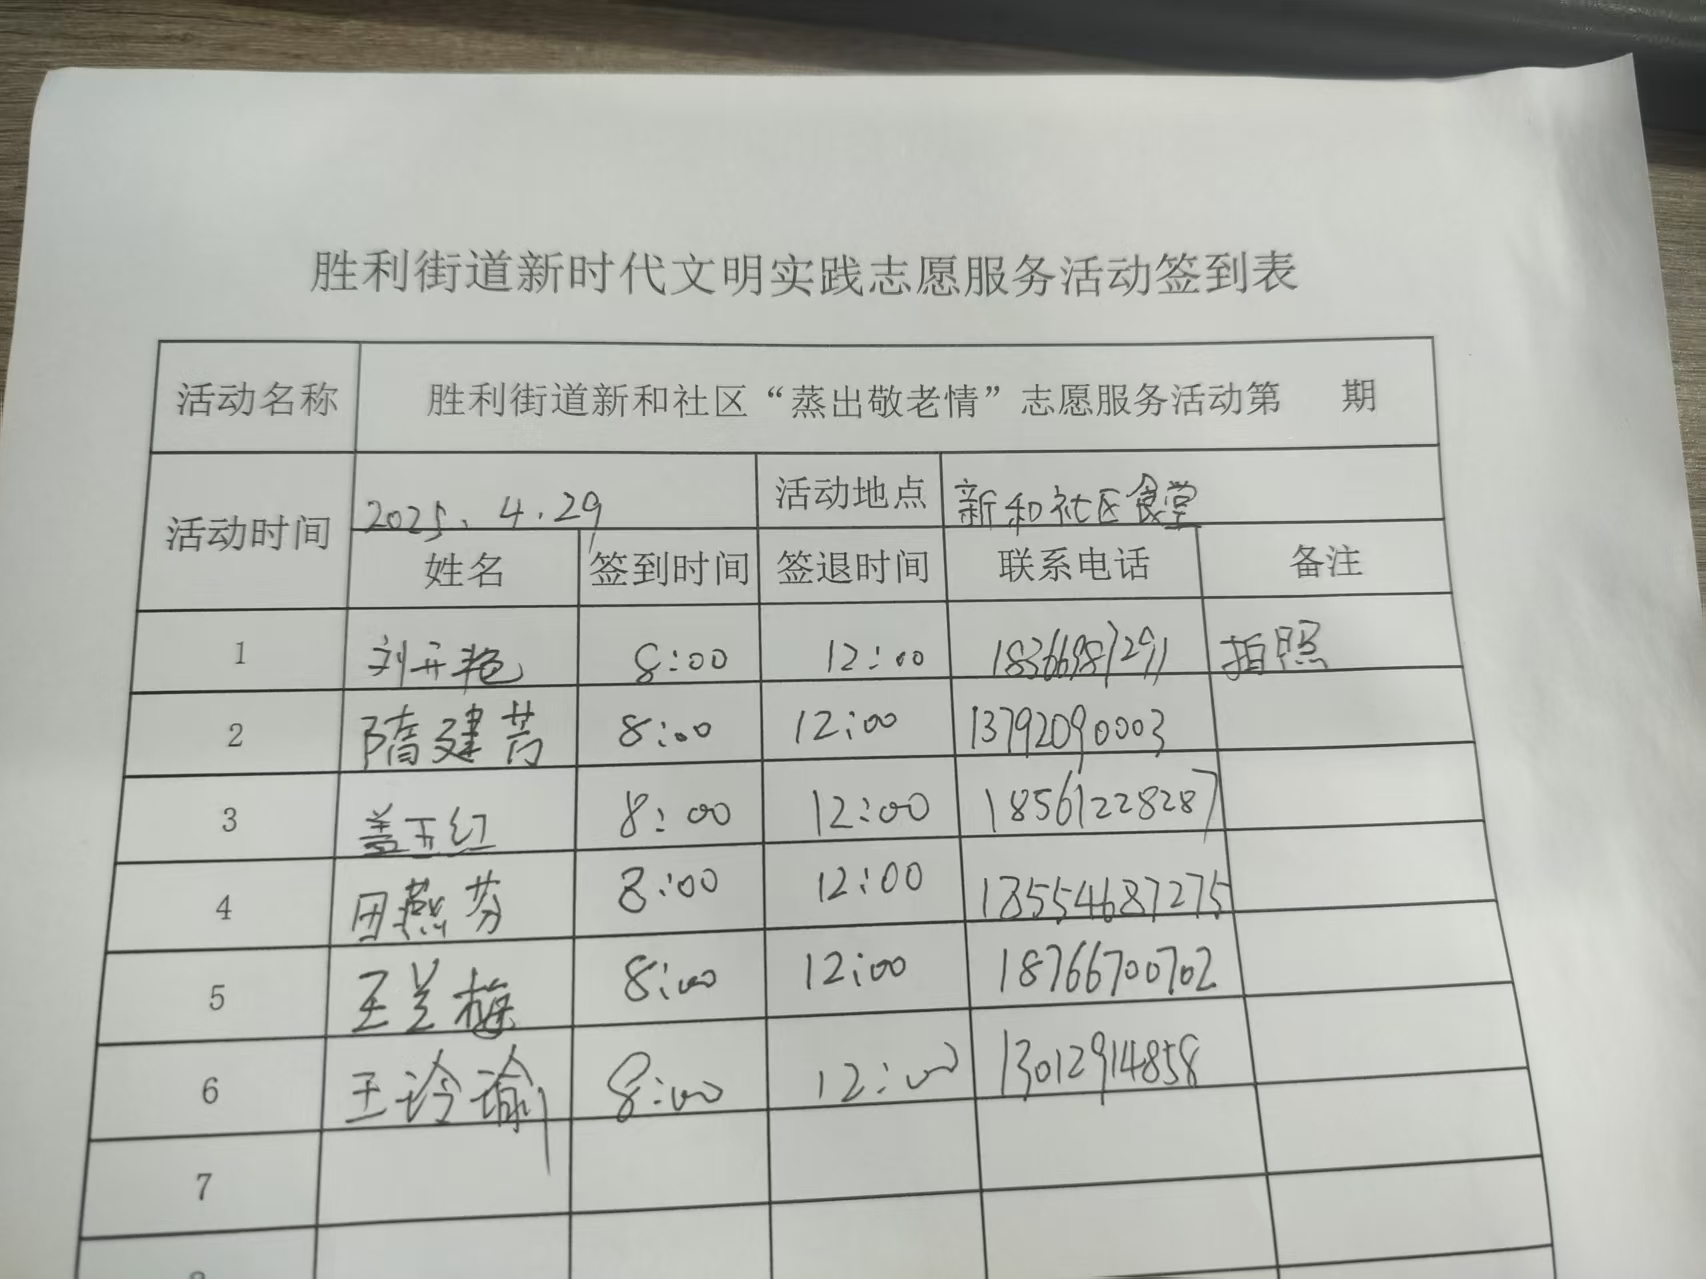 胜利街道新时代文明实践志愿服务活动签到表
活动名称 胜利街道新和社区“蒸出敬老情”志愿服务活动第 期
活动时间 2025.4.29 活动地点 新和社区食堂
姓名 签到时间 签退时间 联系电话 备注
1 刘开艳 8:00 12:00 18366987291 拍照
2 隋建芳 8:00 12:00 13792090003
3 盖玉红 8:00 12:00 18561228287
4 田燕芬 8:00 12:00 18554687275
5 王兰梅 8:00 12:00 18766700702
6 王泠瑜 8:00 12:00 13012914858
7